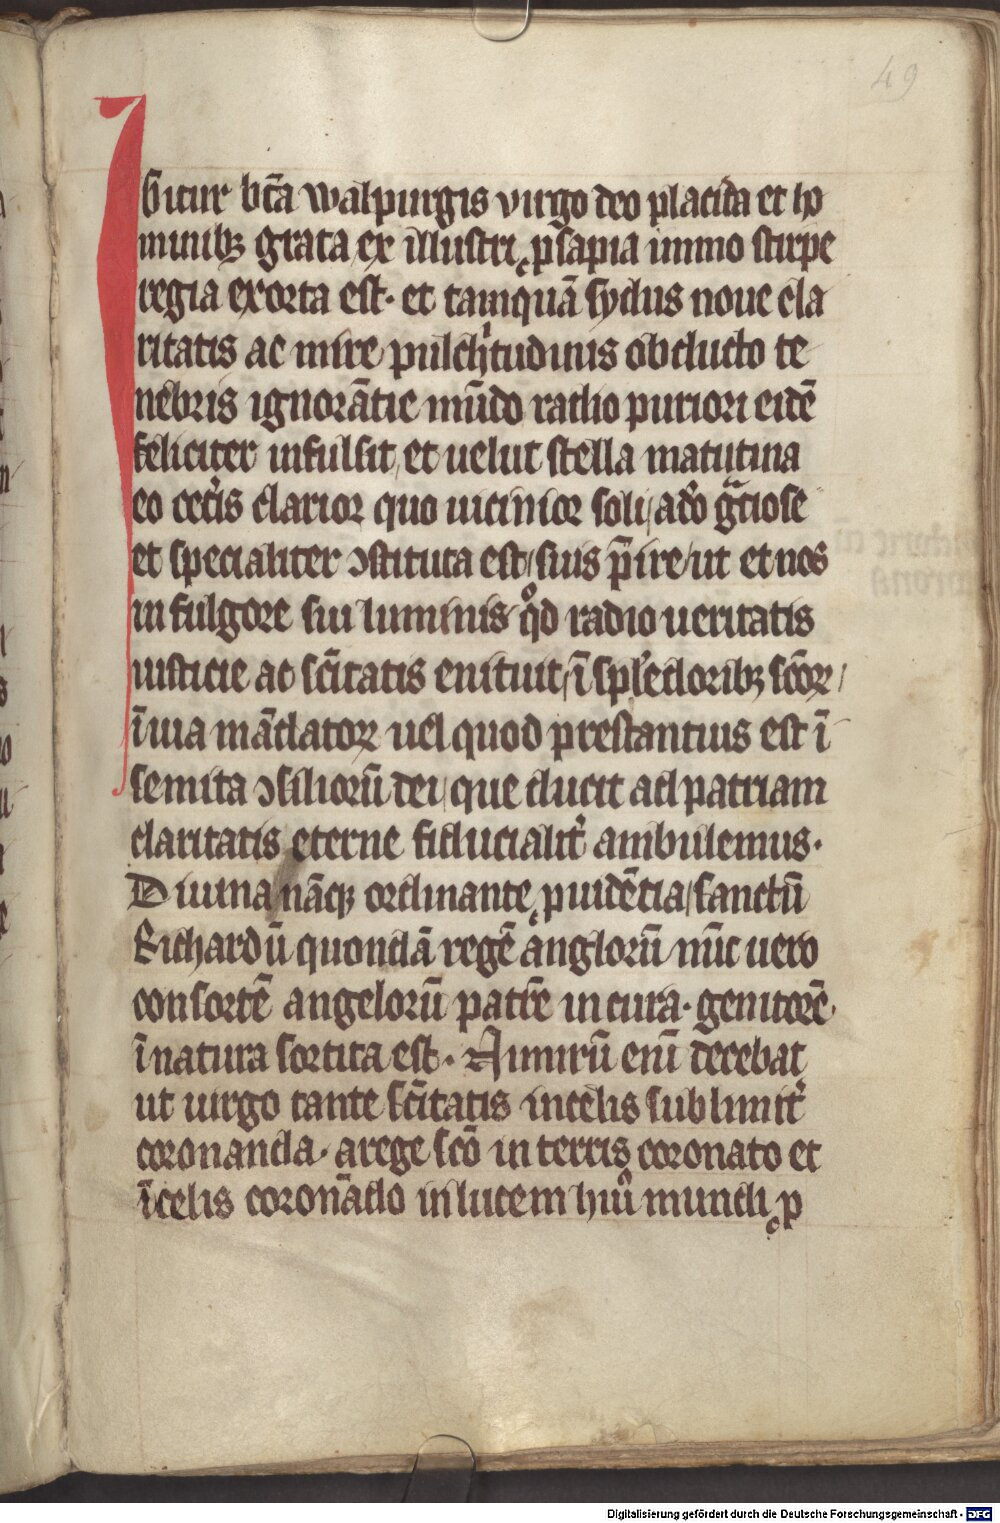 49
Igitur bt̄a walpurgis virgo deo placita et ho
minibꝫ grata ex illustri ꝓsapia immo stirpe
regia exorta est· et tamquā sydus noue cla
ritatis ac mire pulchͥtudinis obducto te
nebris ignorātie mūdo radio puriori eidē
feliciter infulsit/ et uelut stella matutina
eo cet̉is clarior quo uicinior soli/ adō gͣtiose
et specialiter ↄstituta est/ suis p̄ire/ ut et nos
in fulgore sui luminis qͦd radio ueritatis
iusticie ac sc̄itatis enituit/ ī splēdoribꝫ scōꝝ/
ī uia mādatoꝝ uel quod prestantius est ī
semita ↄsiliorū dei/ que ducit ad patriam
claritatis eterne fiducialit̉ ambulemus·
Diuina nāqꝫ ordinante ꝓuidētia/ sanctū
Richardū quondā regē anglorū nūc uero
consortē angelorū patrē in cura· genitorē
ī natura sortita est· Nimirū enī decebat
ut uirgo tante sc̄itatis in celis sublimit̉
coronanda· a rege scō in terris coronato et
ī celis coronādo in lucem huiͦ mundi ꝓ
Digitalisierung gefördert durch die Deutsche Forschungsgemeinschaft - DFG